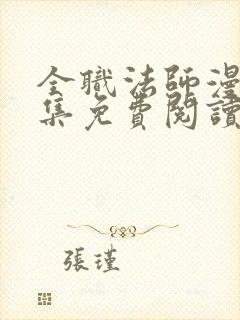 全職法師漫
集免費閱讀
張瑾